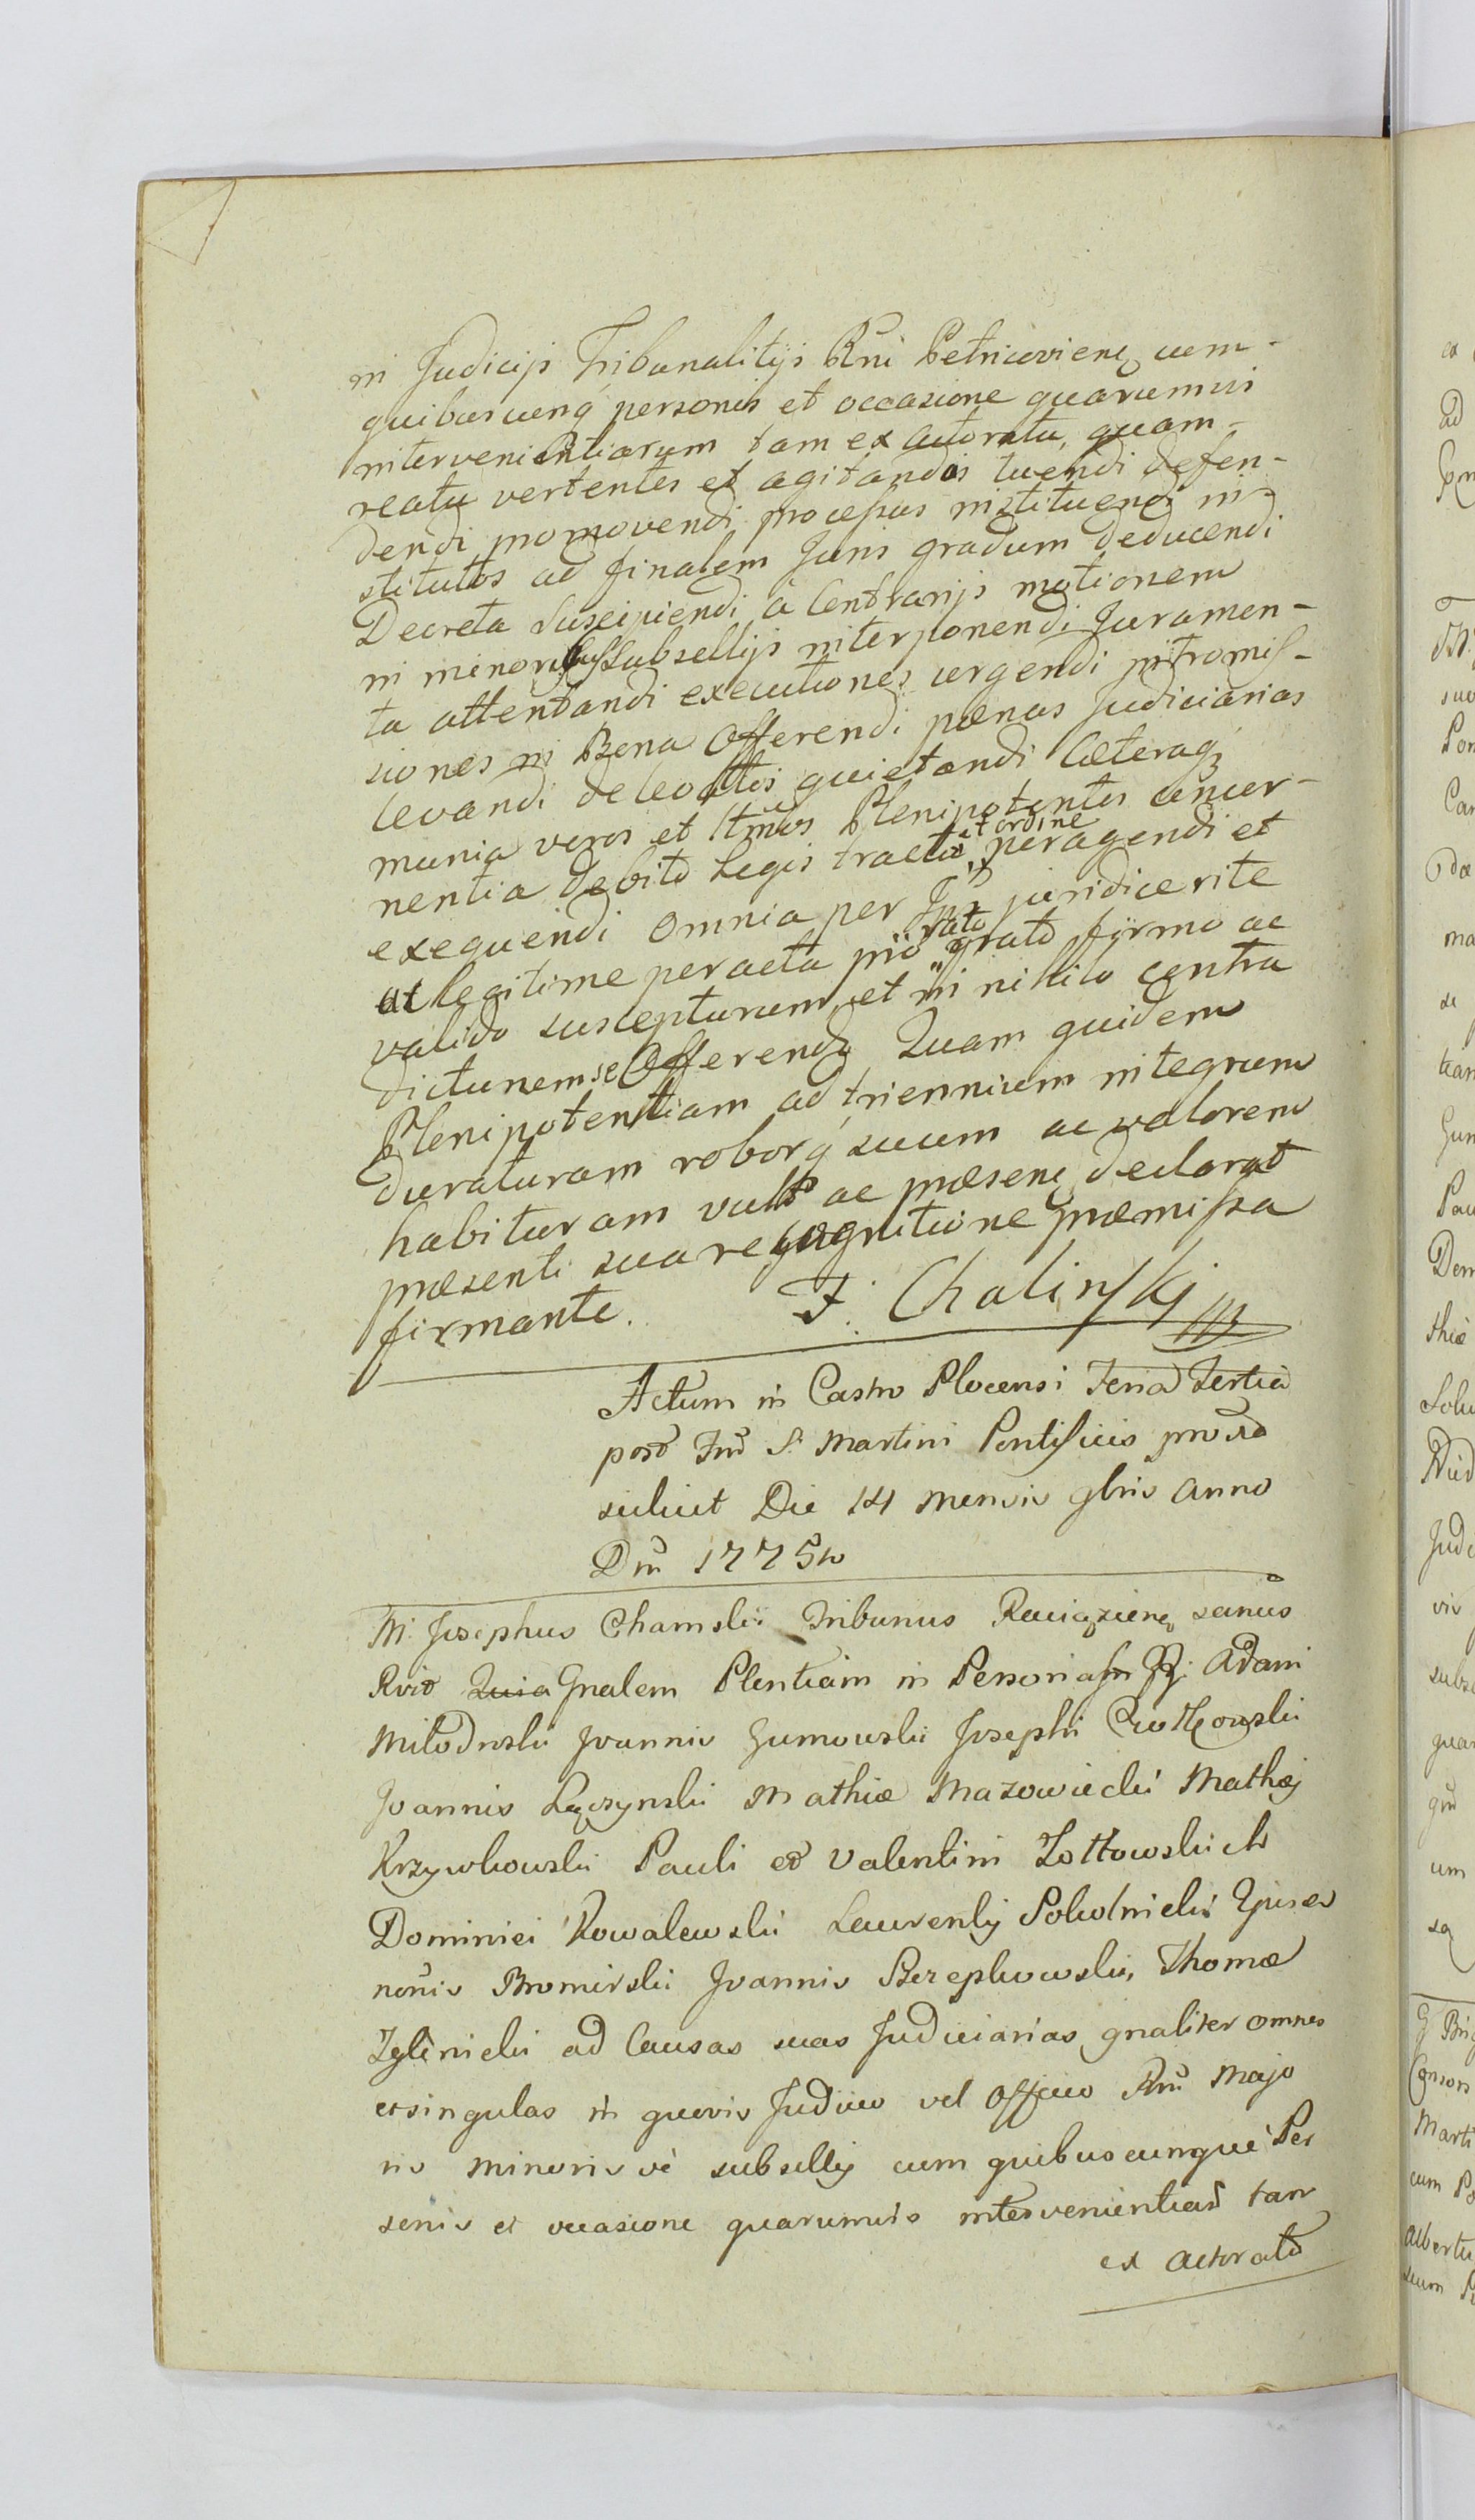 in Judicijs Tribunalitijs Rni Petricovienq cum-
quibuscunq personis et occasione quarumvis
intervenientiarum tam ex actoratu, quam-
reatu vertentes et agitandas tuendi defen-
dendi promovendi processus instituendi in-
stitutos ad finalem Juris gradum deducendi
Decreta suscipiendi à Contrarijs motionem
in minoribus subsellijs interponendi Juramen-
ta attentandi executiones urgendi intromis-
siones in Bona Offerendi pænas Judiciarias
levandi de levatis quietandi Cæteraqz
munia veros et ltmos Plenipotentes concer-
nentia debito Legis tractu et ordine peragendi et
exequendi Omnia per Ips juridice rite
et legitime peracta pro rato grato firmo ac
valido suscepturum et in nihilo contra
dicturum se Offerendo Quam quidem
Plenipotentiam ad triennium integrum
duraturam roborq suum ac valorem
habituram vult ac præsenq declarat
præsenti sua recognitione præmissa
firmante. F. Chaliński mp
Actum in Castro Plocensi Feria Tertia
post Fm S. Martini Pontificis prox
scilicet Die 14 Mensis 9bris Anno
Dni 1775to
M. Josephus Chamski Tribunus Raciązienq sanus
Rvit Quia Gnalem Plentiam in Personas GG. Adami
Miłodroski Joannis Gumowski Josephi Cwotkowski
Joannis Łączynski Mathiæ Mazowiecki Mathæj
Krzywkowski Pauli et Valentini Zołtowskich
Dominici Kowalewski Laurentij Pokolnicki Ejusd
nonis Bromirski Joannis Bezepkowski, Thomæ
Zglinicki ad Causas suas Judiciarias gnaliter omnes
et singulas in quovis Judicio vel Officio Rni Majo
ris minoris vè subsellij cum quibuscunquè Per
sonis et occasione quarumvis intervenientiar tam
ex actoratu